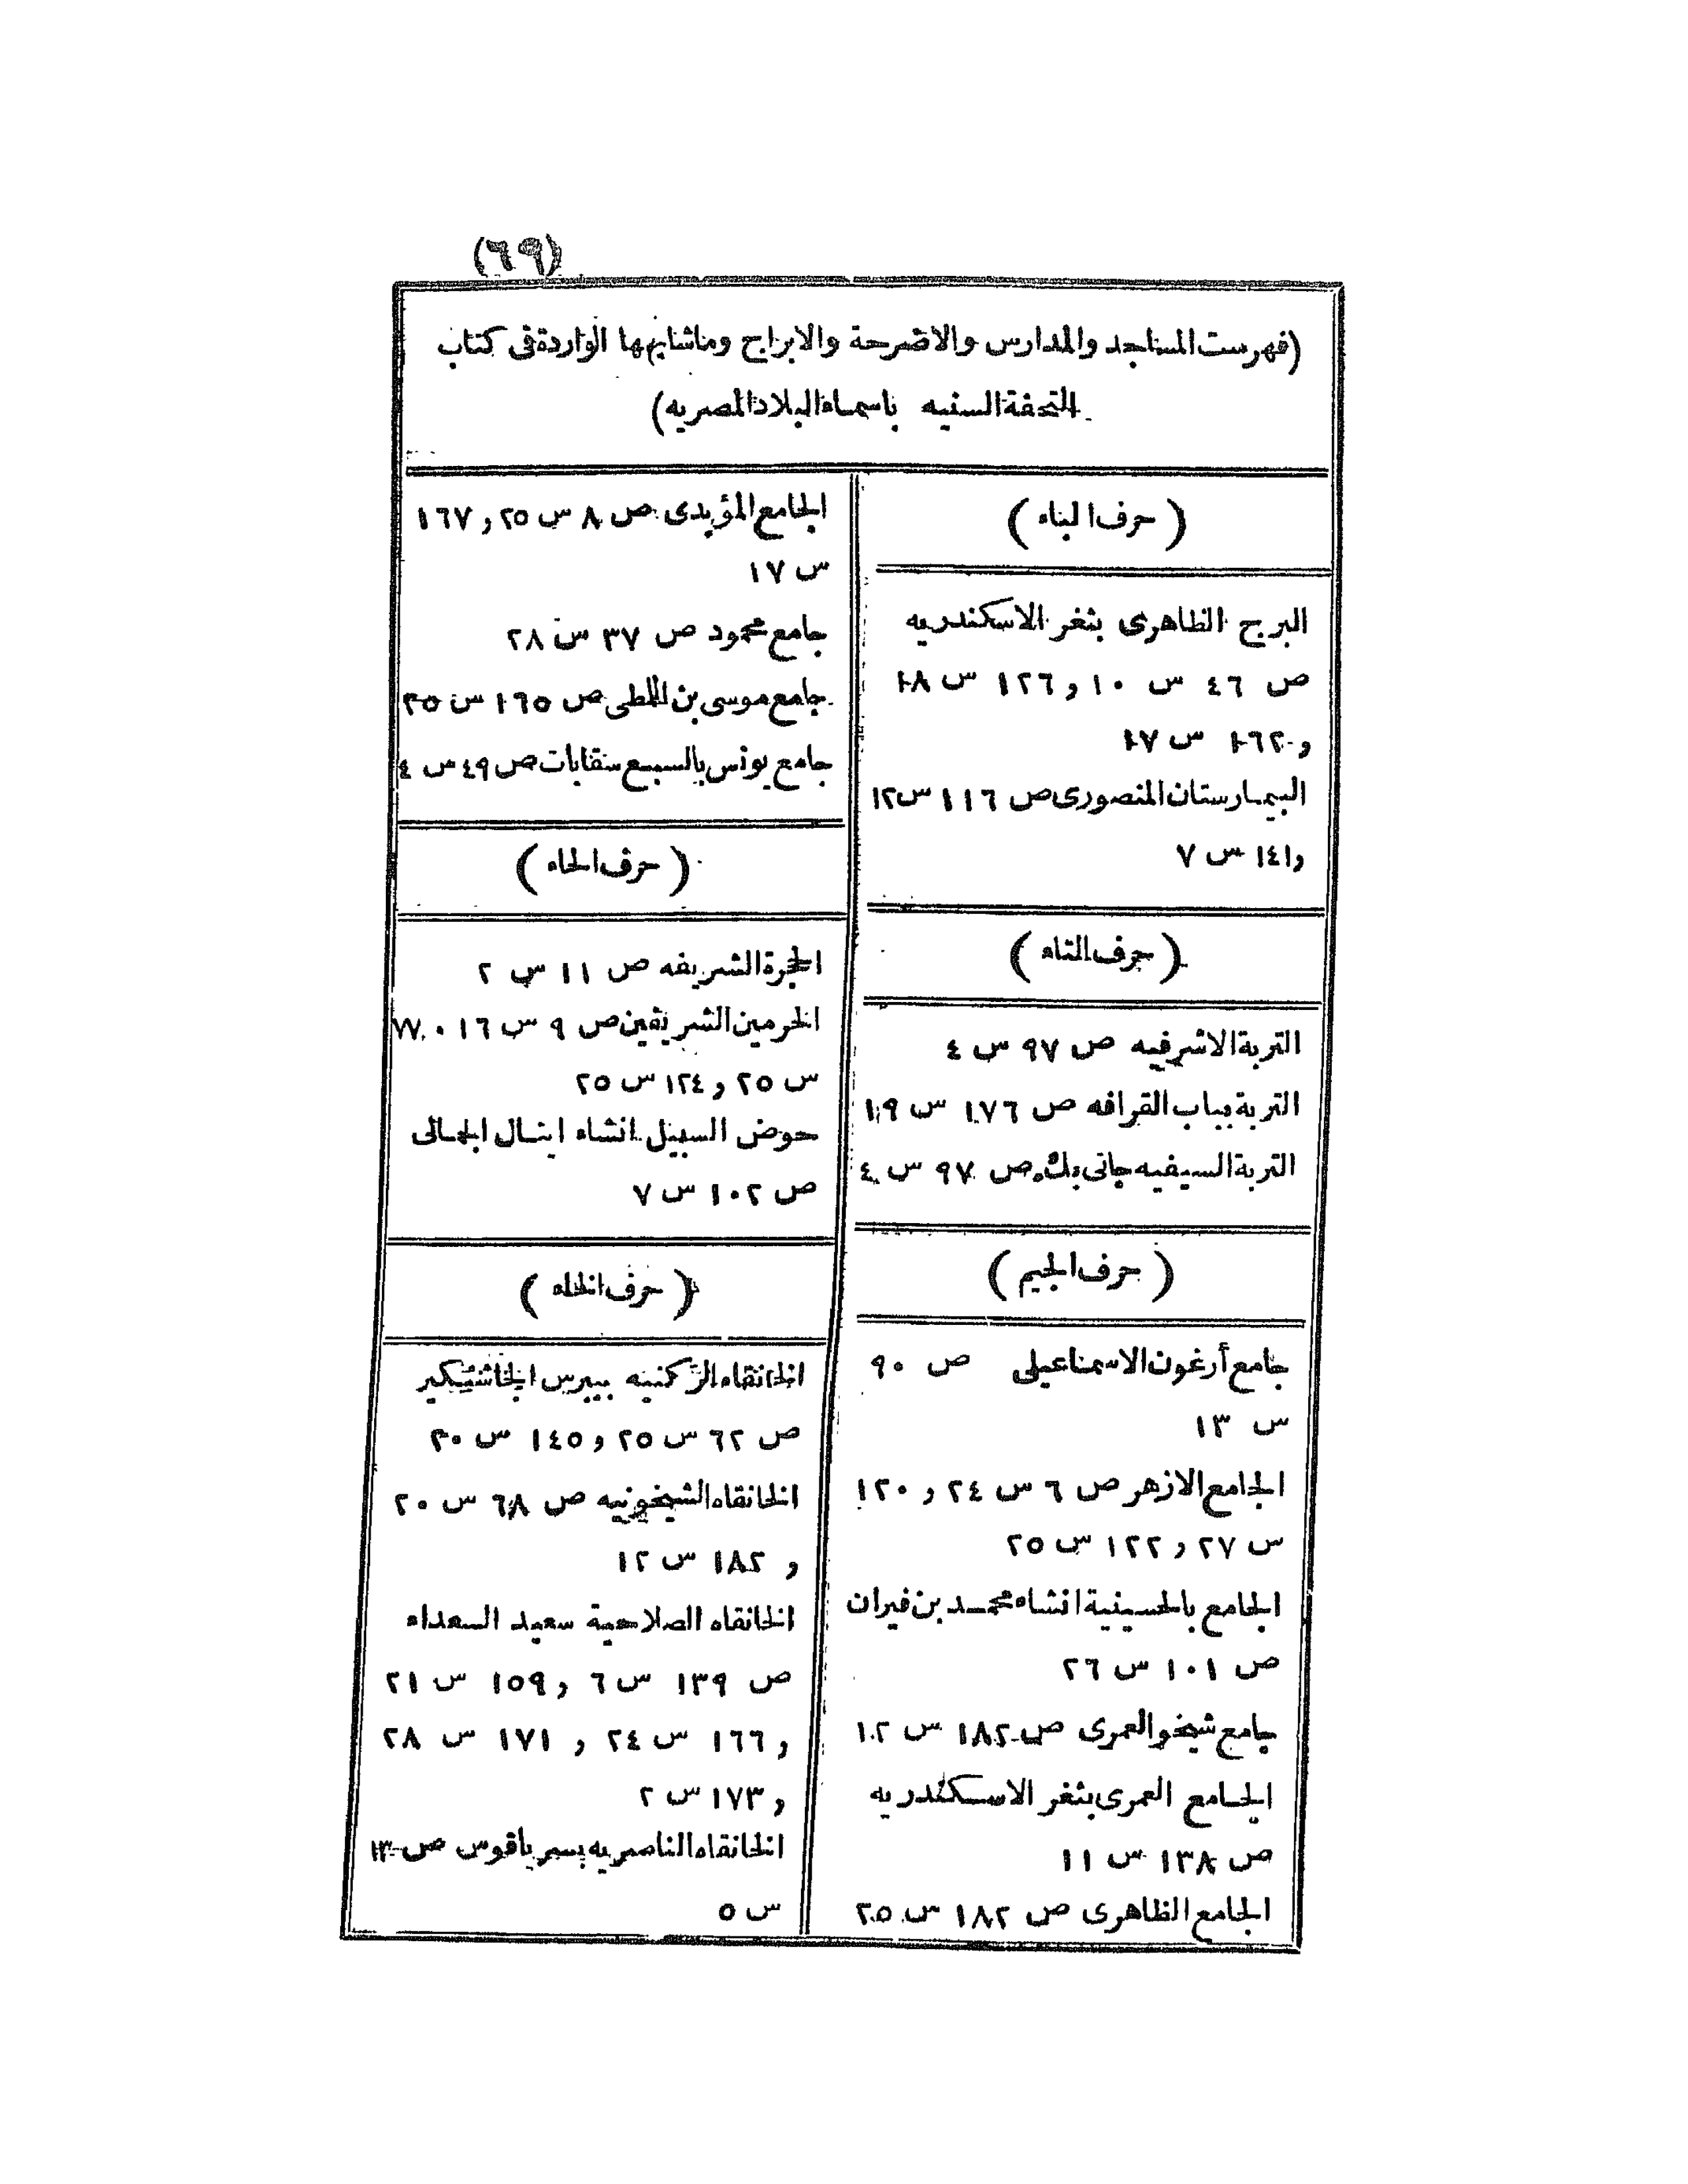 (٦٩)
(فهرست المساجد والمدارس والاضرحة والابراج وماشابهها الواردة فى كتاب
التحفة السنيه باسماء البلاد المصريه)
(حرف الباء)
البرج الظاهرى بثغر الاسكندريه
ص ٤٦ س ١٠ و ١٢٦ س ١٨
و ١٦٢ س ١٧
البيمارستان المنصورى ص ١١٦ س ١٢
و ١٤١ س ٧
(حرف التاء)
التربة الاشرفيه ص ٩٧ س ٤
التربة بباب القرافه ص ١٧٦ س ١٩
التربة السيفيه جانى بك ص ٩٧ س ٤
(حرف الجيم)
جامع أرغون الاسماعيلى ص ٩٠
س ١٣
الجامع الازهر ص ٦ س ٢٤ و ١٢٠
س ٢٧ و ١٢٢ س ٢٥
الجامع بالحسينية انشاء محمد بن فيران
ص ١٠١ س ٢٦
جامع شيخو العمرى ص ١٨٢ س ١٢
الجامع العمرى بثغر الاسكندريه
ص ١٣٨ س ١١
الجامع الظاهرى ص ١٨٢ س ٢٥
الجامع المؤيدى ص ٨ س ٢٥ و ١٦٧
س ١٧
جامع محمود ص ٣٧ س ٢٨
جامع موسى بن الملطى ص ١٦٥ س ٢٥
جامع يونس بالسبع سقايات ص ٤٩ س ٤
(حرف الحاء)
الحجرة الشريفه ص ١١ س ٢
الحرمين الشريفين ص ٩ س ١٦ . ٧٧
س ٢٥ و ١٢٤ س ٢٥
حوض السبيل انشاء اينال الجمالى
ص ١٠٢ س ٧
(حرف الخاء)
الخانقاه الركنيه بيبرس الجاشنكير
ص ٦٢ س ٢٥ و ١٤٥ س ٣٠
الخانقاه الشيخونيه ص ٦٨ س ٢٠
و ١٨٢ س ١٢
الخانقاه الصلاحية سعيد السعداء
ص ١٣٩ س ٦ و ١٥٩ س ٢١
و ١٦٦ س ٢٤ و ١٧١ س ٢٨
و ١٧٣ س ٢
الخانقاه الناصريه بسرياقوس ص ١٣
س ٥